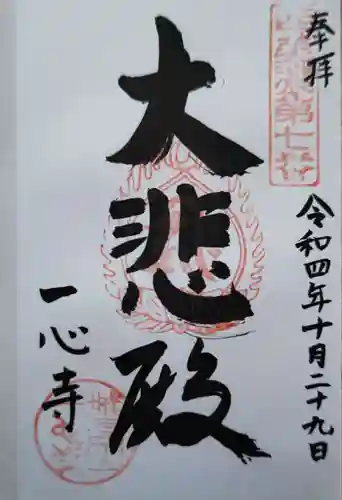 奉拝
令和四年十月二十九日
大悲殿
一心寺